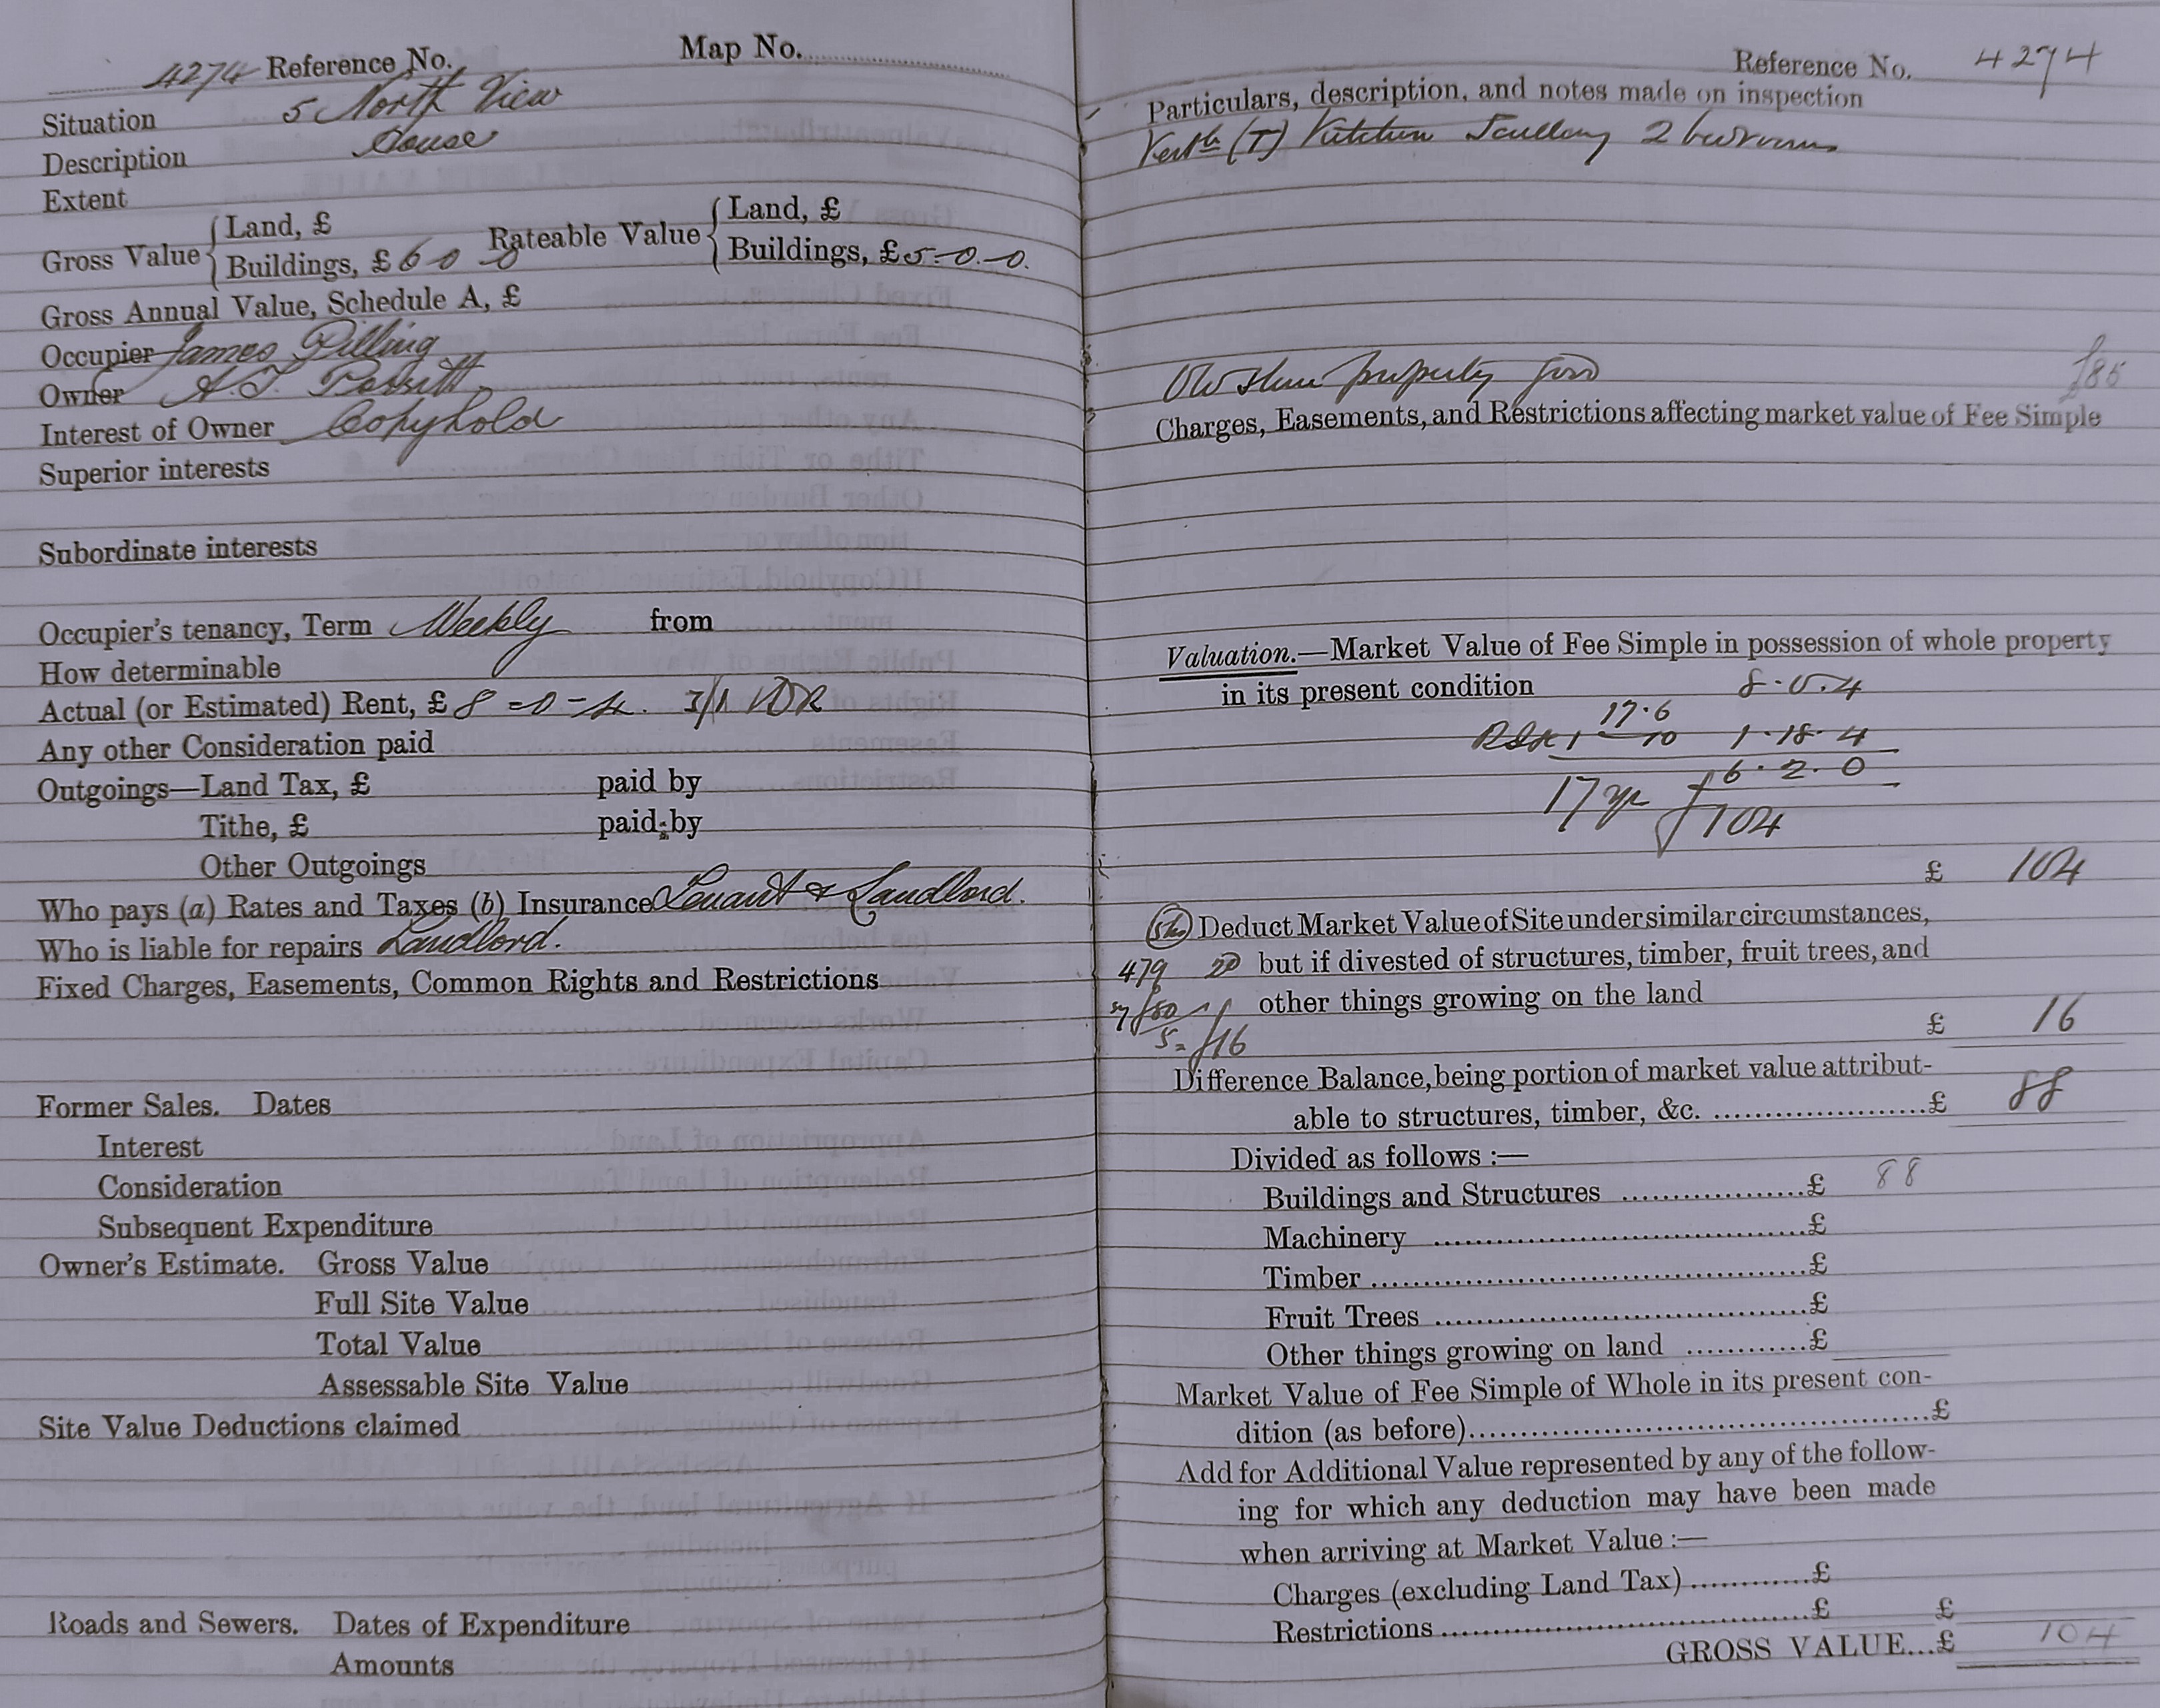 4274 Reference No. Map No.
Situation 5 North View
Description House
Extent
Gross Value { Land, £ Rateable Value { Land, £
Buildings, £ 6-0-0 Buildings, £ 5-0-0.
Gross Annual Value, Schedule A, £
Occupier James Pilling
Owner A. T.
Interest of Owner Copyhold
Superior interests
Subordinate interests
Occupier's tenancy, Term Weekly from
How determinable
Actual (or Estimated) Rent, £ 8-0-4. 3/1
Any other Consideration paid
Outgoings—Land Tax, £ paid by
Tithe, £ paid by
Other Outgoings
Who pays (a) Rates and Taxes (b) Insurance Tenant & Landlord.
Who is liable for repairs Landlord.
Fixed Charges, Easements, Common Rights and Restrictions
Former Sales. Dates
Interest
Consideration
Subsequent Expenditure
Owner's Estimate. Gross Value
Full Site Value
Total Value
Assessable Site Value
Site Value Deductions claimed
Roads and Sewers. Dates of Expenditure
Amounts
Reference No. 4274
Particulars, description, and notes made on inspection
(T) Kitchen Scullery 2 bedrooms
property £85
Charges, Easements, and Restrictions affecting market value of Fee Simple
Valuation.—Market Value of Fee Simple in possession of whole property
in its present condition 8.0.4
17.6
1 10 1.18.4
6.2.0
17 yp £104
£ 104
Deduct Market Value of Site under similar circumstances,
479 but if divested of structures, timber, fruit trees, and
other things growing on the land
£16
£ 16
Difference Balance, being portion of market value attribut-
able to structures, timber, &c. ........ £ 88
Divided as follows :—
Buildings and Structures ........ £ 88
Machinery ........ £
Timber ........ £
Fruit Trees ........ £
Other things growing on land ........ £
Market Value of Fee Simple of Whole in its present con-
dition (as before) ........ £
Add for Additional Value represented by any of the follow-
ing for which any deduction may have been made
when arriving at Market Value :—
Charges (excluding Land Tax) ........ £
Restrictions ........ £ £
GROSS VALUE... £ 104